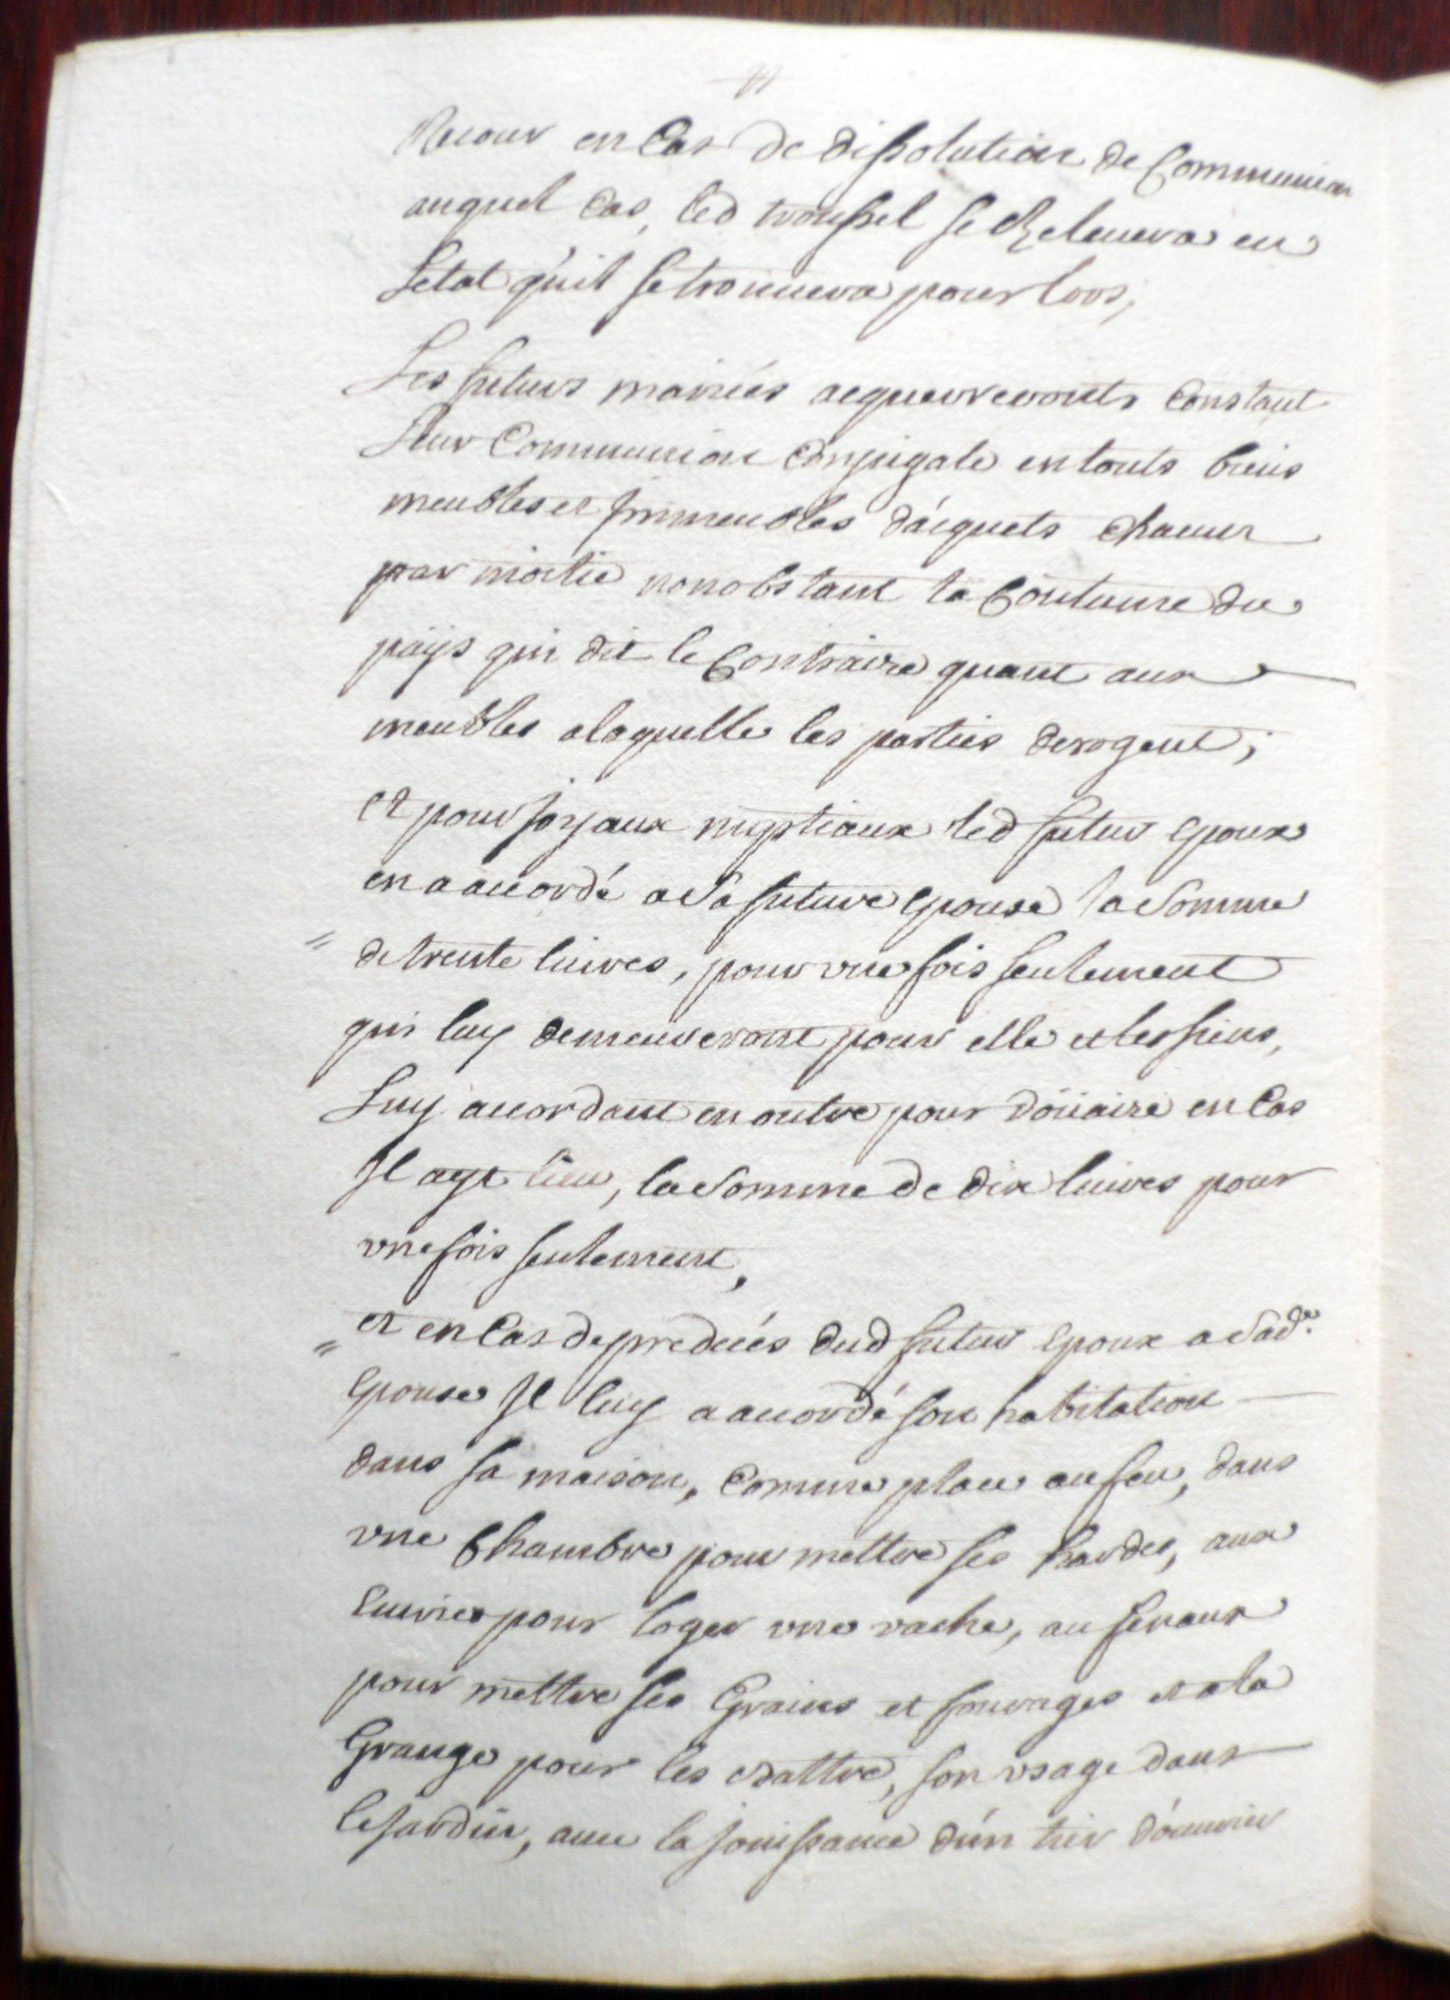 Recour en Cas de dissolution de Communion
auquel Cas, led troussel se Relevera en
Letat qu'il se trouuera pour lors,
Les futurs mariés acquerreronts Constant
Leur Communion Conjugale en touts biens
meubles et jmmeubles d'acquets chacun
par moitié nonobstant la Coutume du
päys qui dit le Contraire quant aux
meubles a laquelle les parties derogent;
et pour joyaux nuptiaux led futur epoux
en a accordé a Sa future epouse la Somme
de trente liures, pour vne fois seulement
qui luy demeureront pour elle et les siens,
Luy accordant en outre pour doüaire en Cas
Jl ayt lieu, la Somme de dix liures pour
vne fois seulement,
et en Cas de predecés dud futur epoux a Sad.e
epouse Jl luy a accordé son habitation
dans sa maison, Comme place au feu, dans
vne Chambre pour mettre ses hardes, aux
Ecuries pour loger vne vache, au fenaux
pour mettre ses Grains et fourages et a la
Grange pour les Battre, son vsage dans
le Jardin, auec la Jouissance d'un tier d'ouurier